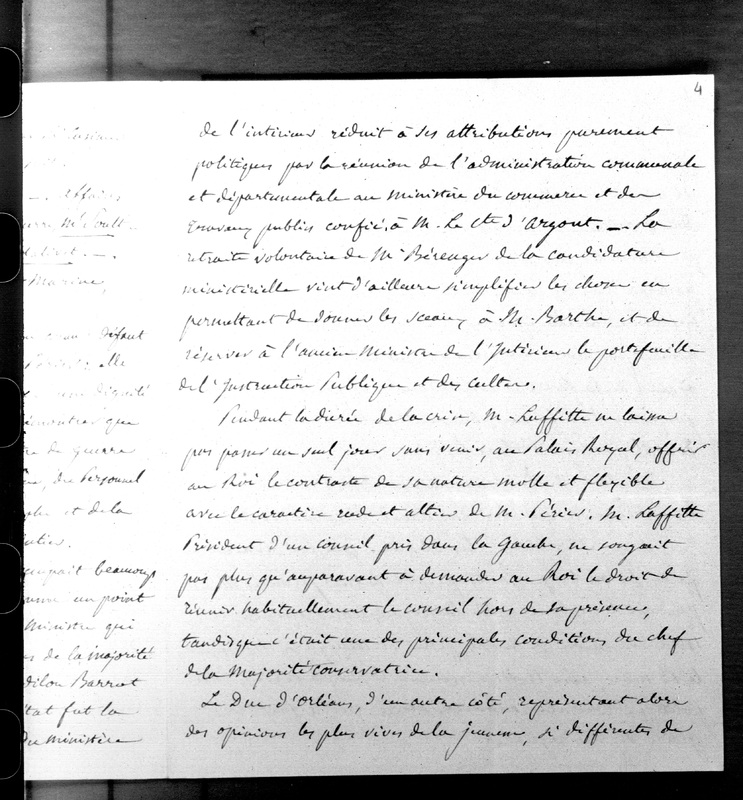 4
de l'intérieur réduit à ses attributions purement
politiques par la réunion de l'administration communale
et départementale au ministère du commerce et des
travaux publics confiés à M. Le Cte d'Argout. — La
retraite volontaire de Mr Bérenger de la candidature
ministérielle vint d'ailleurs simplifier les choses en
permettant de donner les sceaux à M. Barthe, et de
réserver à l'ancien Ministre de l'Intérieur le portefeuille
de l'Instruction Publique et des cultes.
Pendant la durée de la crise, M. Laffitte ne laissa
pas passer un seul jour sans venir, au Palais Royal, offrir
au Roi le contraste de sa nature molle et flexible
avec le caractère rude et altier de M. Périer. M. Laffitte
Président d'un conseil pris dans la Gauche, ne songeait
pas plus qu'auparavant à demander au Roi le droit de
réunir habituellement le conseil hors de sa présence,
tandisque c'était une des principales conditions du chef
de la Majorité conservatrice.
Le Duc d'Orléans, d'un autre côté, représentant alors
des opinions les plus vives de la jeunesse, si différentes de
— Affaires
Mr Soult
Marine,
disant
elle
dignité
que
de guerre
du Personnel
et de la
beaucoup
un point
Ministre qui
de la majorité
Odilon Barrot
fut la
Du ministère